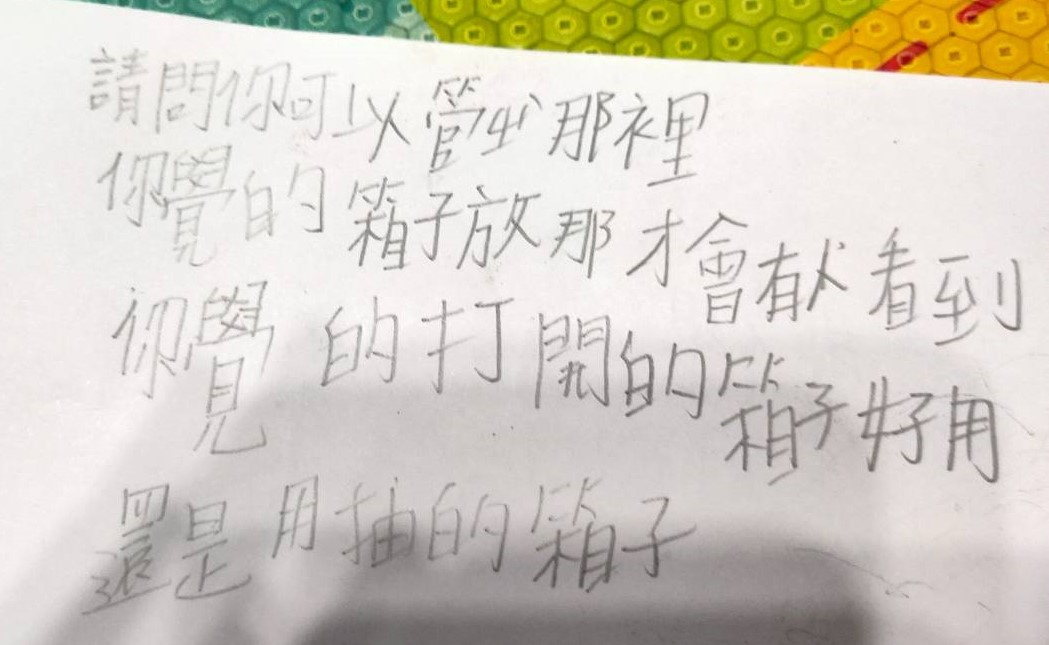 請問你可以管到那裡
你覺的箱子放那才會有人看到
你覺的打開的箱子好用
還是用抽的箱子